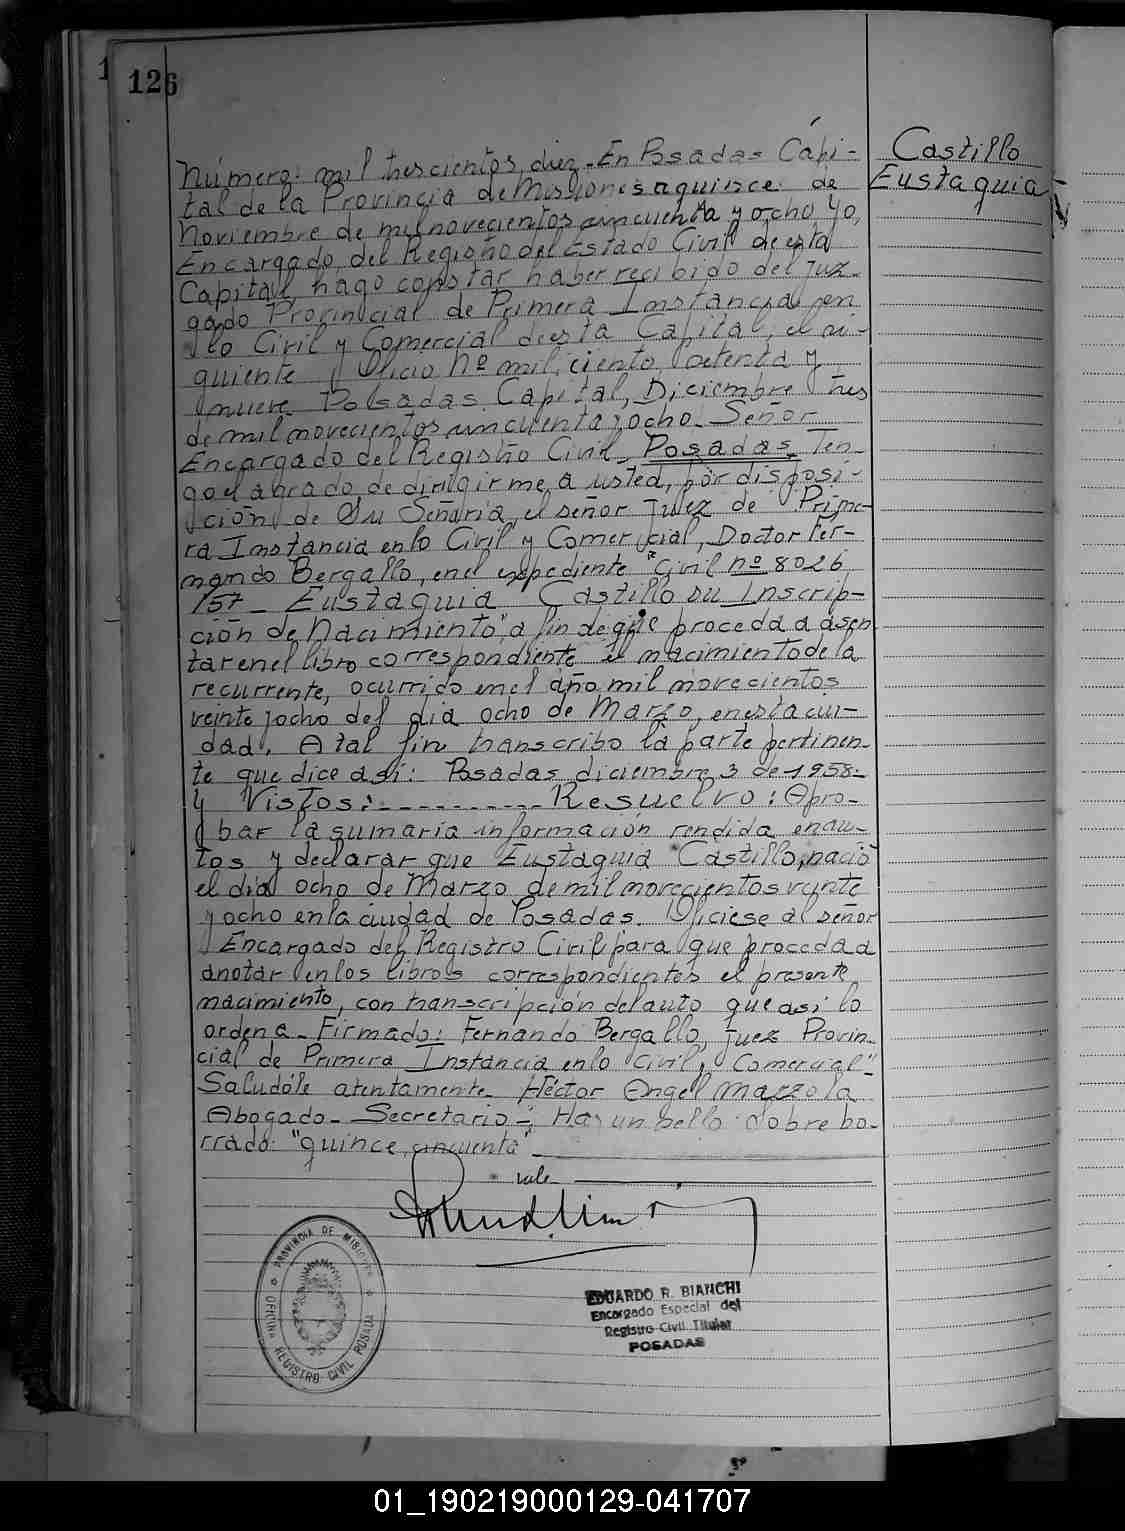 126
Castillo
Eustaquia
Número: mil trescientos diez. En Posadas Capi-
tal de la Provincia de Misiones a quince de
Noviembre de mil novecientos cincuenta y ocho, yo,
Encargado del Registro del Estado Civil de esta
Capital, hago constar haber recibido del Juz-
gado Provincial de Primera Instancia en
lo Civil y Comercial de esta Capital, el si-
guiente Oficio Nº mil ciento ochenta y
nueve Posadas Capital, Diciembre tres
de mil novecientos cincuenta y ocho. Señor
Encargado del Registro Civil_ Posadas_ Ten-
go el agrado de dirigirme a usted, por disposi-
ción de Su Señoria, el señor Juez de Prime-
ra Instancia en lo Civil y Comercial, Doctor Fer-
nando Bergallo, en el expediente "Civil nº 8026
/57_ Eustaquia Castillo su Inscrip-
ción de Nacimiento" a fin de que proceda a asen
tar en el libro correspondiente el nacimiento de la
recurrente, ocurrido en el año mil novecientos
veinte y ocho del dia ocho de Marzo, en esta ciu-
dad. A tal fin transcribo la parte pertinen-
te que dice asi: Posadas diciembre 3 de 1958.-
y Vistos:---------- Resuelvo: Apro-
bar la sumaria información rendida en au-
tos y declarar que Eustaquia Castillo, nació
el día ocho de Marzo de mil novecientos veinte
y ocho en la ciudad de Posadas. Oficiese al señor
Encargado del Registro Civil para que proceda a
anotar en los libros correspondientes el presente
nacimiento, con transcripción del auto que asi lo
ordena_ Firmado: Fernando Bergallo, Juez Provin-
cial de Primera Instancia en lo Civil y Comercial"-
Saludóle atentamente_ Héctor Angel Marzola
Abogado_ Secretario_; Hay un sello. Sobre bo-
rrado: "quince, cincuenta"
vale
PROVINCIA DE MISIONES
OFICINA REGISTRO CIVIL POSADAS
EDUARDO R. BIANCHI
Encargado Especial del
Registro Civil Titular
POSADAS
01_190219000129-041707